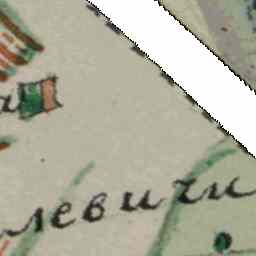 левичи